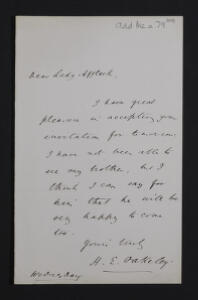 Add Ms a 79
Dear Lady Appleck,
I have great
pleasure in accepting your
invitation for tomorrow.
I have not been able to
see my brother, but I
think I can say for
him that he will be
very happy to come
too.
Yours truly
H. E. Oakeley.
Wednesday